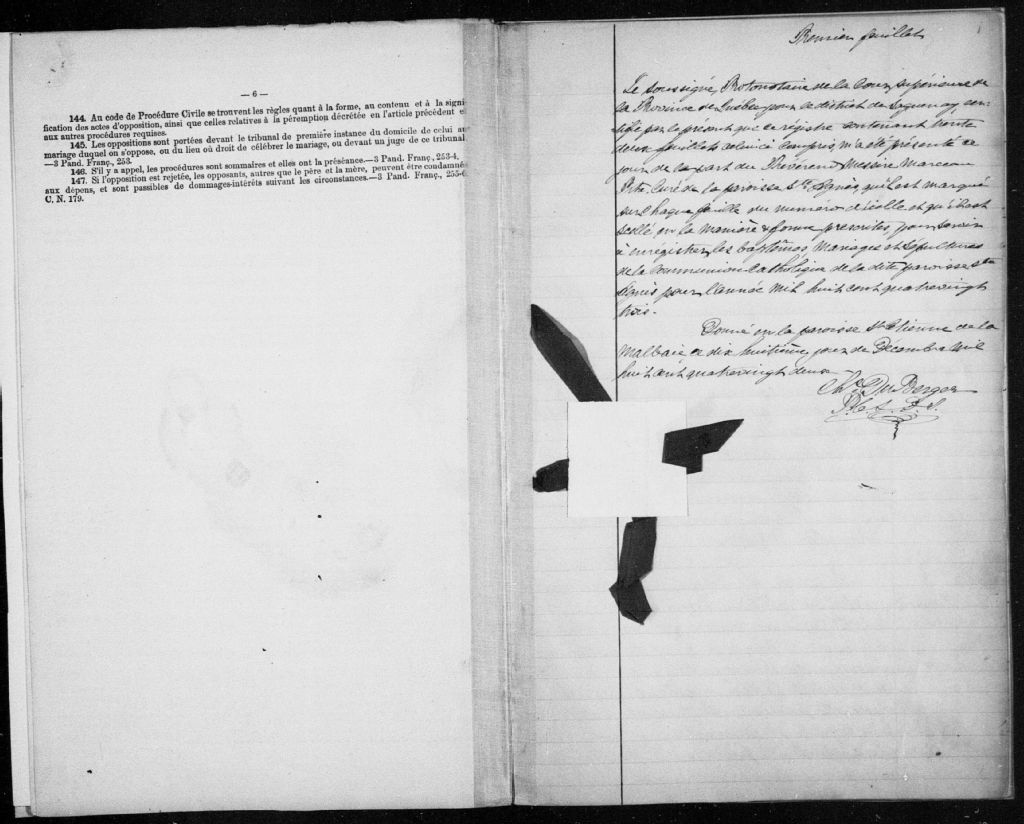 — 6 —
144. Au code de Procédure Civile se trouvent les règles quant à la forme, au contenu et à la signi
fication des actes d'opposition, ainsi que celles relatives à la péremption décrétée en l'article précédent e
aux autres procédures requises.
145. Les oppositions sont portées devant le tribunal de première instance du domicile de celui au
mariage duquel on s'oppose, ou du lien où droit de célébrer le mariage, ou devant un juge de ce tribunal
—3 Pand. Franç., 253.
146. S'il y a appel, les procédures sont sommaires et elles ont la préséance.—3 Pand. Franç., 253-4.
147. Si l'opposition est rejetée, les opposants, autres que le père et la mère, peuvent être condamnés
aux dépens, et sont passibles de dommages-intérêts suivant les circonstances.—3 Pand. Franç., 255-6
C. N. 179.
Premier feuillet
1
Le soussigné, Protonotaire de la Cour Supérieure de
la Province de Québec pour le district de Saguenay cer-
tifie par le présent que ce régistre contenant trente
deux feuillets celui-ci compris, m'a été présenté ce
jour de la part du Révérend Messire Marceau
Ptre. Curé de la paroisse Ste Agnès, qu'il est marqué
sur chaque feuille du numéro d'icelle et qu'il est
scellé en la manière & forme prescrites, pour servir
à enrégistrer les baptêmes Mariages et Sépultures
de la Communion Catholique de la dite paroisse Ste
Agnès pour l'année mil huit cent quatrevingt
trois.
Donné en la paroisse St Etienne de la
Malbaie ce dix huitième jour de Décembre mil
huit cent quatrevingt deux
Chs DuBerger
P. C. S. D. S.